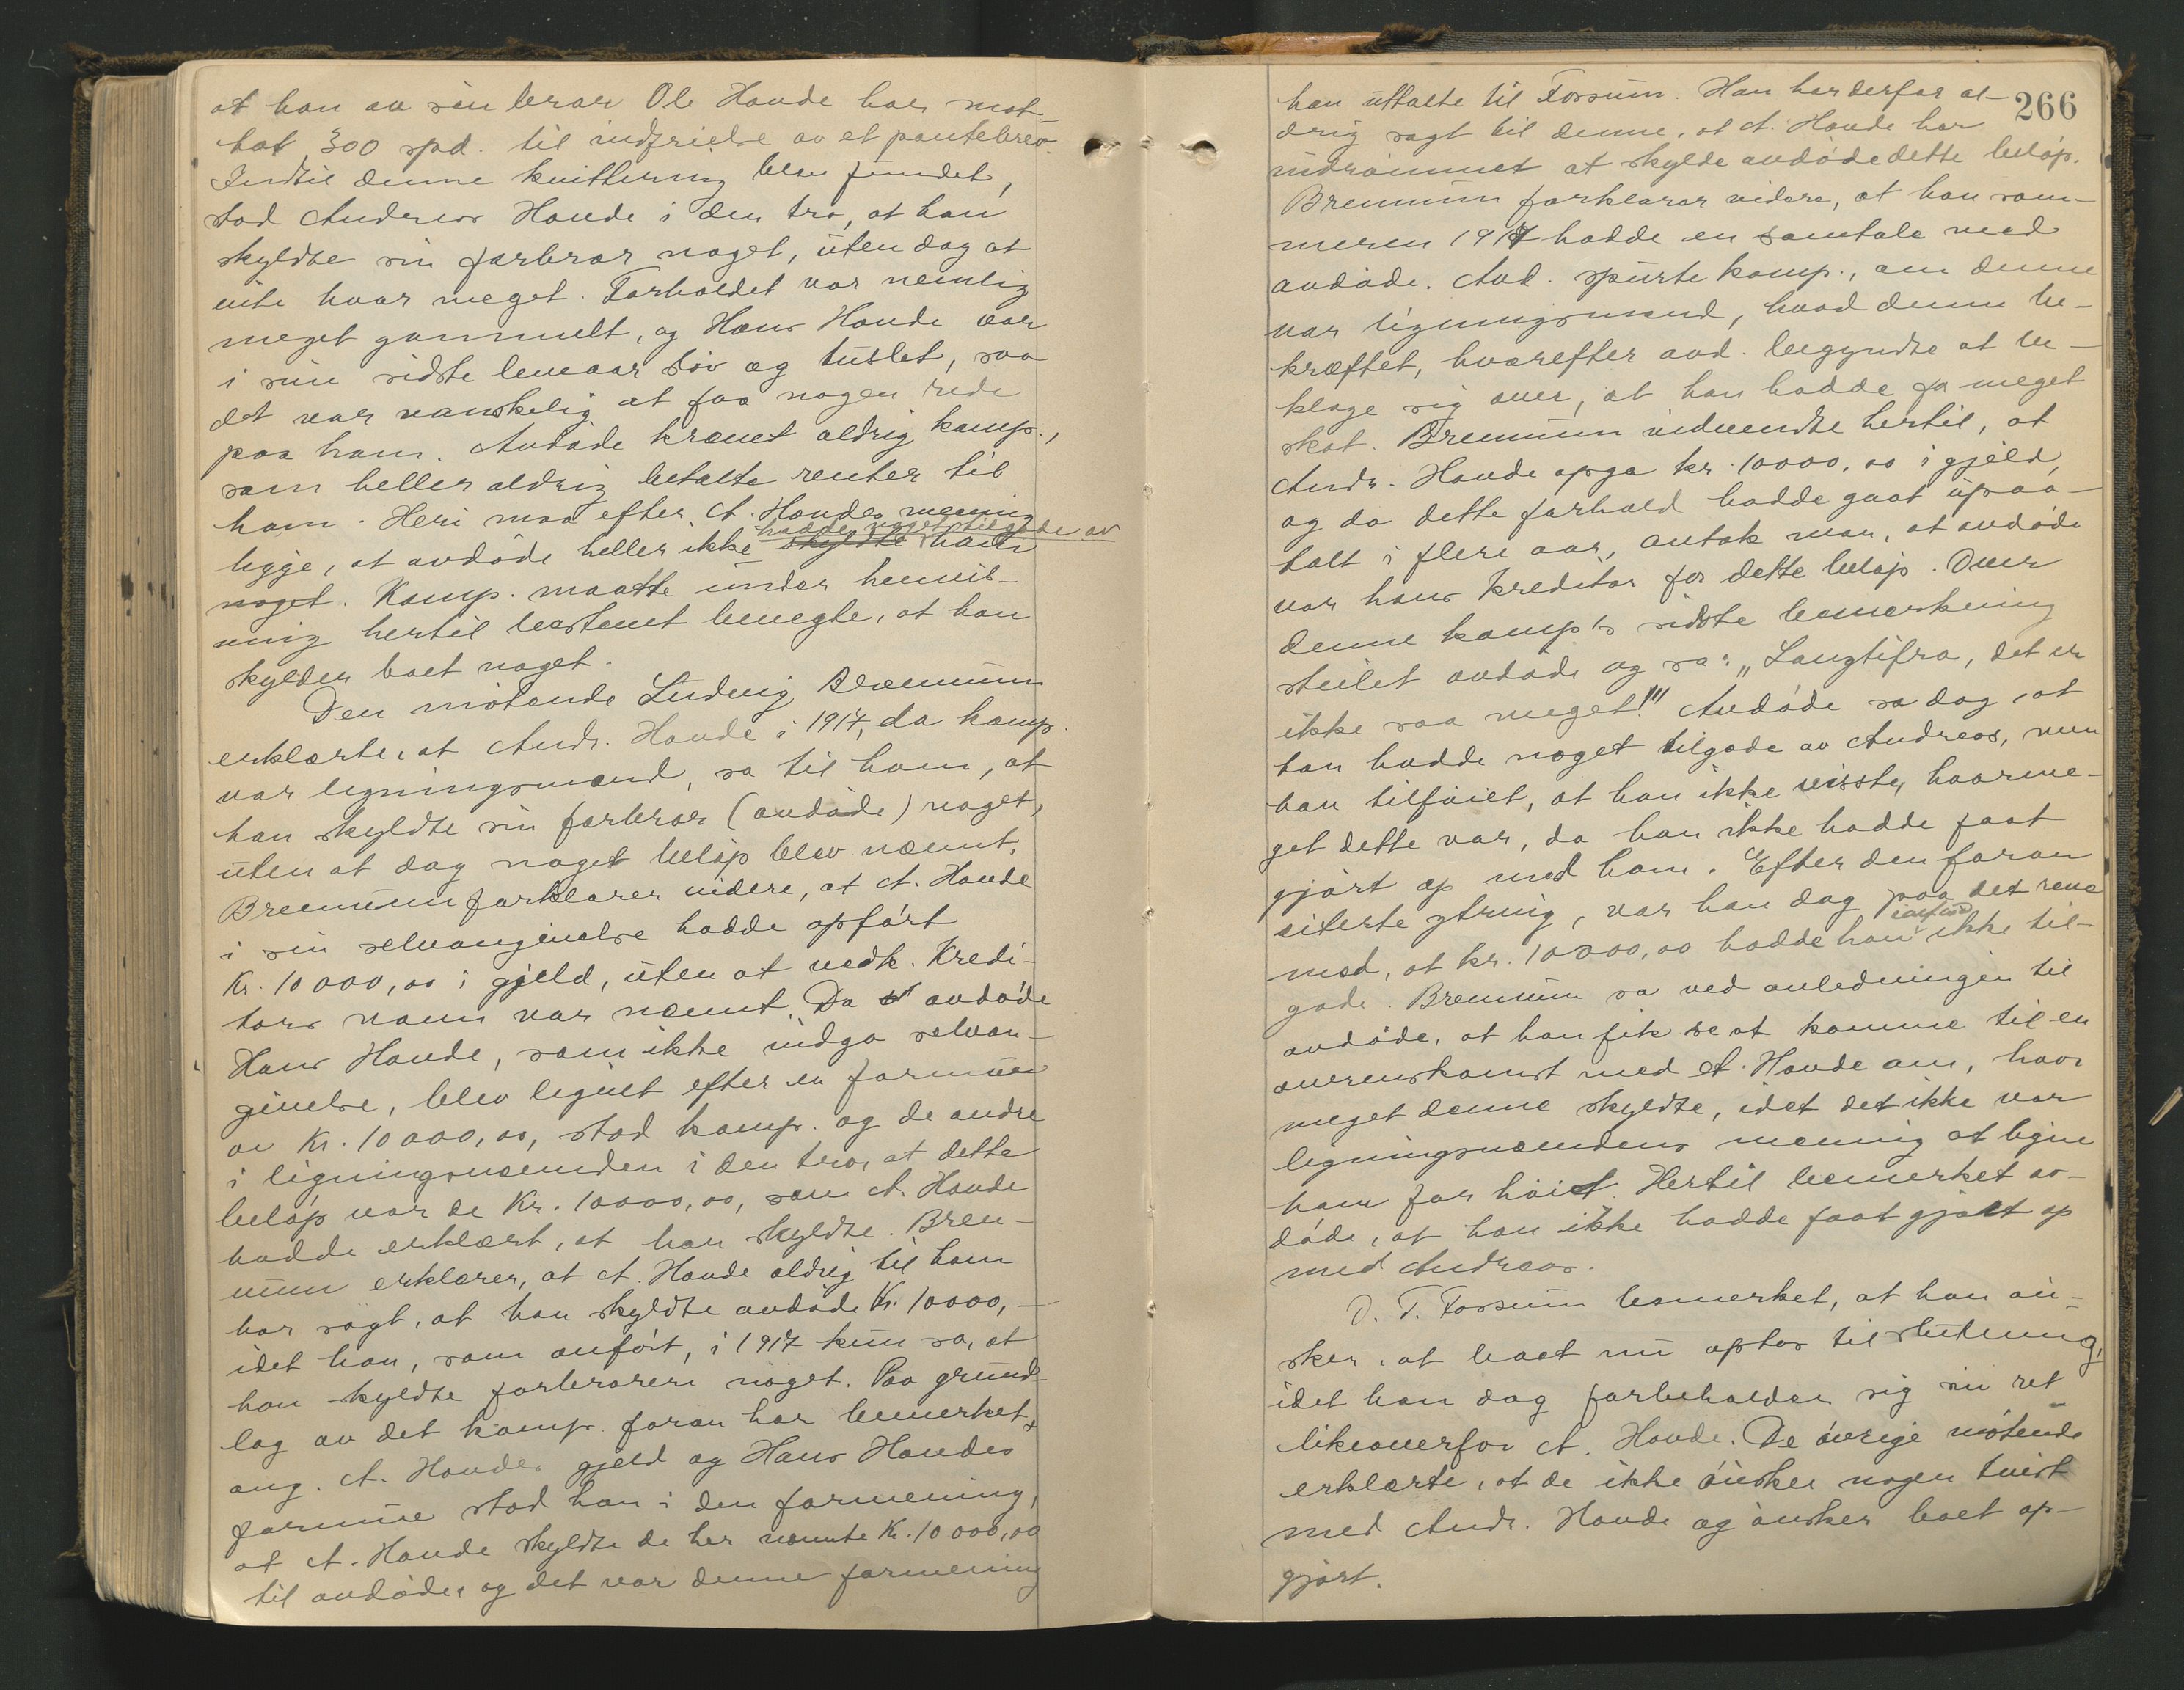 at han av sin bror Ole Hovde har mot-
tat 300 spd. til indfrielse av et pantebrev.
Indtil denne kvittering blev fundet,
stod Andreas Hovde i den tro, at han
skyldte sin farbror noget, uten dog at
vite hvor meget. Forholdet var nemlig
meget gammelt, og Hans Hovde var
i sin sidste leveaar sløv og tuslet, saa
det var vanskelig at faa nogen rede
paa ham. Avdøde krævet aldrig komp.,
som heller aldrig betalte renter til
ham. Heri maa efter A. Hovdes mening
hadde noget tilgode av
ligge, at avdøde heller ikke skyldte ham
noget. Komp. maatte under henvis-
ning hertil bestemt benegte, at han
skylder boet noget.
Den møtende Ludvig Brennum
erklærte, at Andr. Hovde i 1917, da komp.
var ligningsmand, sa til ham, at
han skyldte sin farbror (avdøde) noget,
uten at dog noget beløp blev nævnt.
Brennum forklarer videre, at A. Hovde
i sin selvangivelse hadde opført
Kr. 10000,00 i gjeld, uten at vedk. Kredi-
tors navn var nævnt. Da avdøde
Hans Hovde, som ikke indga selvan-
givelse, blev lignet efter en formue
av Kr. 10000,00, stod komp. og de andre
i ligningsnævnden i den tro, at dette
beløp var de Kr. 10000,00, som A. Hovde
hadde erklært, at han skyldte. Bren-
num erklærer, at A. Hovde aldrig til ham
har sagt, at han skyldte avdøde Kr. 10000,-
idet han, som anført, i 1917 kun sa, at
han skyldte farbroren noget. Paa grund-
lag av det komp. foran har bemerket
ang. A. Hovdes gjeld og Hans Hovdes
formue stod han i den formening,
at A. Hovde skyldte de her nævnte Kr. 10000,00
til avdøde, og det var denne formening
266
han uttalte til Fossum. Han har derfor al-
drig sagt til denne, at A. Hovde har
indrømmet at skylde avdøde dette beløp.
Brennum forklarer videre, at han som-
meren 1917 hadde en samtale med
avdøde. Avd. spurte komp., om denne
var ligningsmand, hvad denne be-
kræftet, hvorefter avd. begyndte at be-
klage sig over, at han hadde for meget
skat. Brennum indvendte hertil, at
Andr. Hovde opga kr. 10000,00 i gjeld,
og da dette forhold hadde gaat upaa-
talt i flere aar, antok man, at avdøde
var hans kreditor for dette beløp. Over
denne komp's sidste bemerkning
steilet avdøde og sa: "Langtifra, det er
ikke saa meget!" Avdøde sa dog, at
han hadde noget tilgode av Andreas, men
han tilføiet, at han ikke visste, hvorme-
get dette var, da han ikke hadde faat
gjort op med ham. Efter den foran
siterte ytring, var han dog paa det rene
ialfald
med, at kr. 10000,00 hadde han ikke til-
gode. Brennum sa ved anledningen til
avdøde, at han fik se at komme til en
overenskomst med A. Hovde om, hvor
meget denne skyldte, idet det ikke var
ligningsnævndens mening at ligne
ham for høit. Hertil bemerket av-
døde, at han ikke hadde faat gjort op
med Andreas.
O. T. Fossum bemerket, at han øn-
sker, at boet nu optas til slutning,
idet han dog forbeholder sig sin ret
likeoverfor A. Hovde. De øvrige møtende
erklærte, at de ikke ønsker nogen tvist
med Andr. Hovde og ønsker boet op-
gjort.